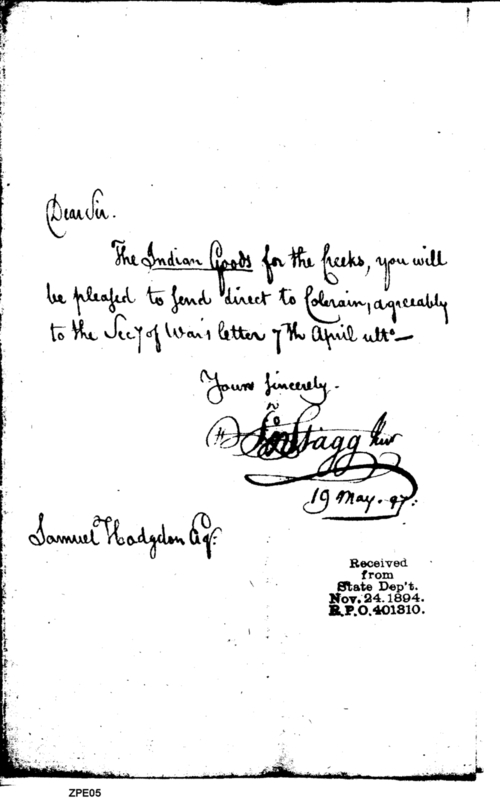 Dear Sir.
The Indian Goods for the Creeks, you will
be pleased to send direct to Colerain, agreeably
to the Secy of War's letter 7th April ulto—
Yours sincerely.
Jno Stagg Junr
19 May. 97.
Samuel Hodgdon Esqr.
Received
from
State Dep't.
Nov. 24. 1894.
R.P.O. 401310.
ZPE05